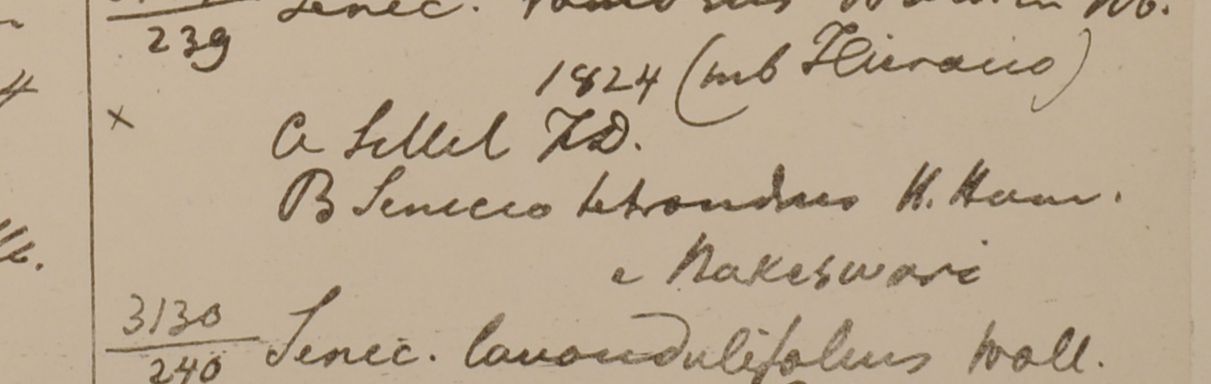 239 Senec.
1824 (sub Hieracio)
4
x
a Sillet F.D.
B Senecio tetrandrus H. Ham.
e Nakeswari
3130
240 Senec. lavandulifolius Wall.